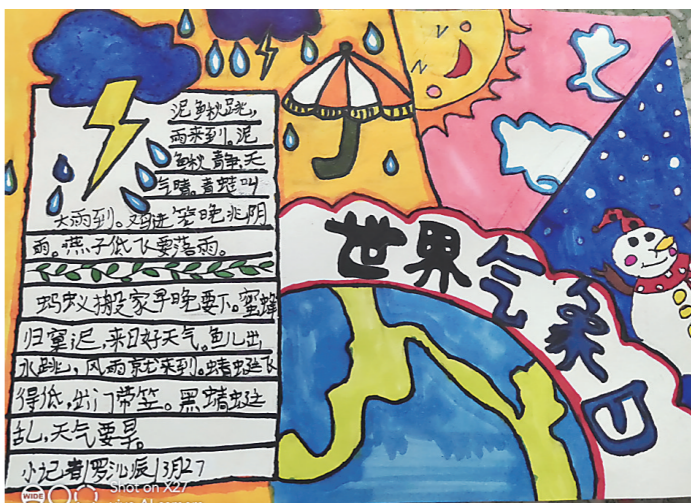 泥鳅跳，
雨来到。泥
鳅静，天
气晴。青蛙叫
大雨到。鸡进笼晚兆阴
雨。燕子低飞要落雨。
蚂蚁搬家早晚要下。蜜蜂
归窠迟，来日好天气。鱼儿出
水跳，风雨就来到。蜻蜓飞
得低，出门带笠。黑蜻蜓
乱，天气要旱。
小记者 罗 3月27
世界气象日
WIDE
Shot on X27